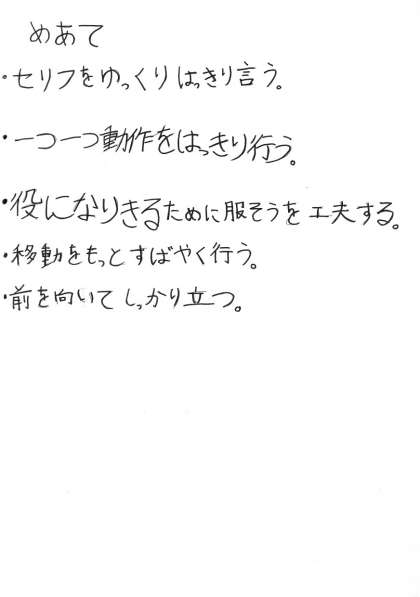 めあて
・セリフをゆっくりはっきり言う。
・一つ一つ動作をはっきり行う。
・役になりきるために服そうを工夫する。
・移動をもっとすばやく行う。
・前を向いてしっかり立つ。